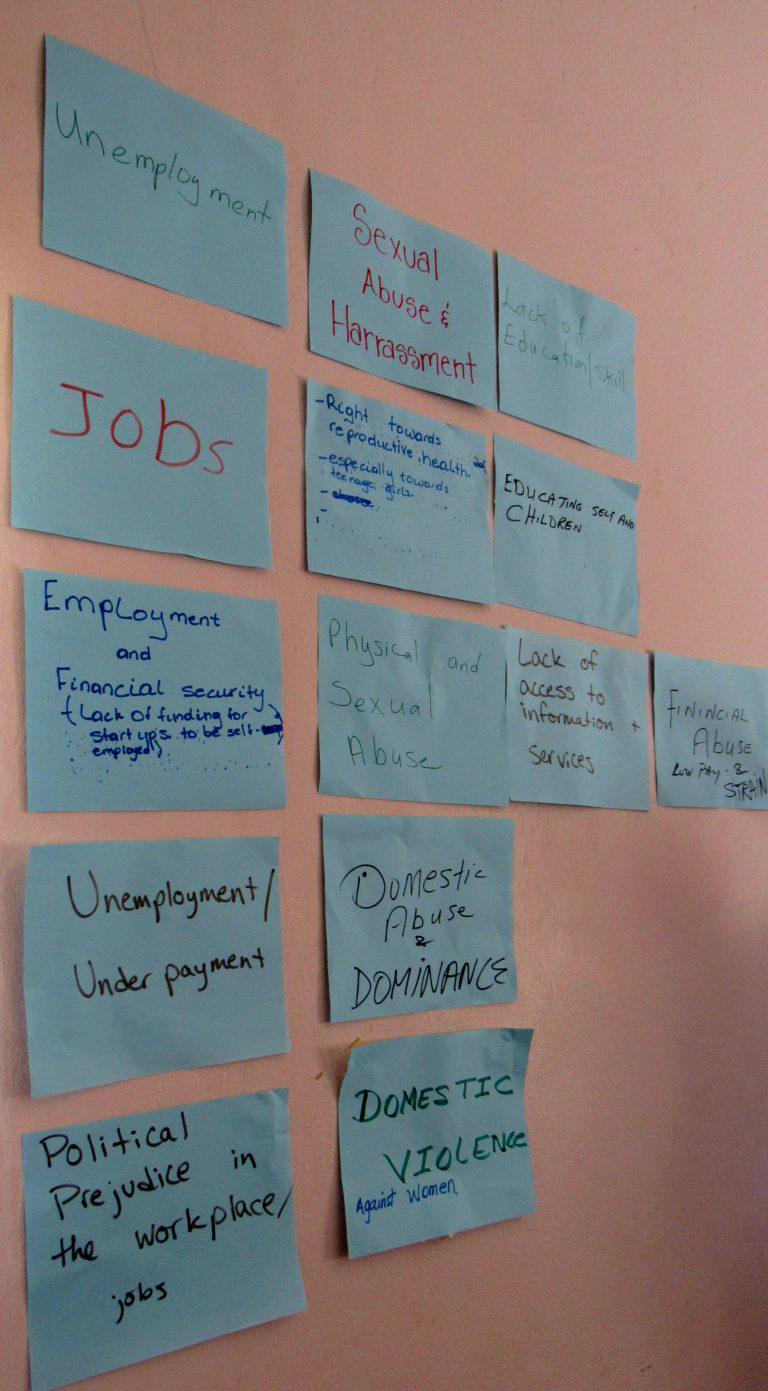 Unemployment
Jobs
Employment
and
Financial security
(Lack of funding for
start ups to be self-
employed)
Unemployment/
Under payment
Political
Prejudice in
the workplace/
jobs
Sexual
Abuse &
Harrassment
-Right towards
reproductive health.
-especially towards
teenage girls.
-
-
Physical and
Sexual
Abuse
Domestic
Abuse
&
DOMINANCE
DOMESTIC
VIOLENCE
Against Women.
Lack of
Education/Skill
EDUCATING SELF AND
CHILDREN
Lack of
access to
information +
Services
FININCIAL
ABUSE
LOW PAY. &
STRAIN